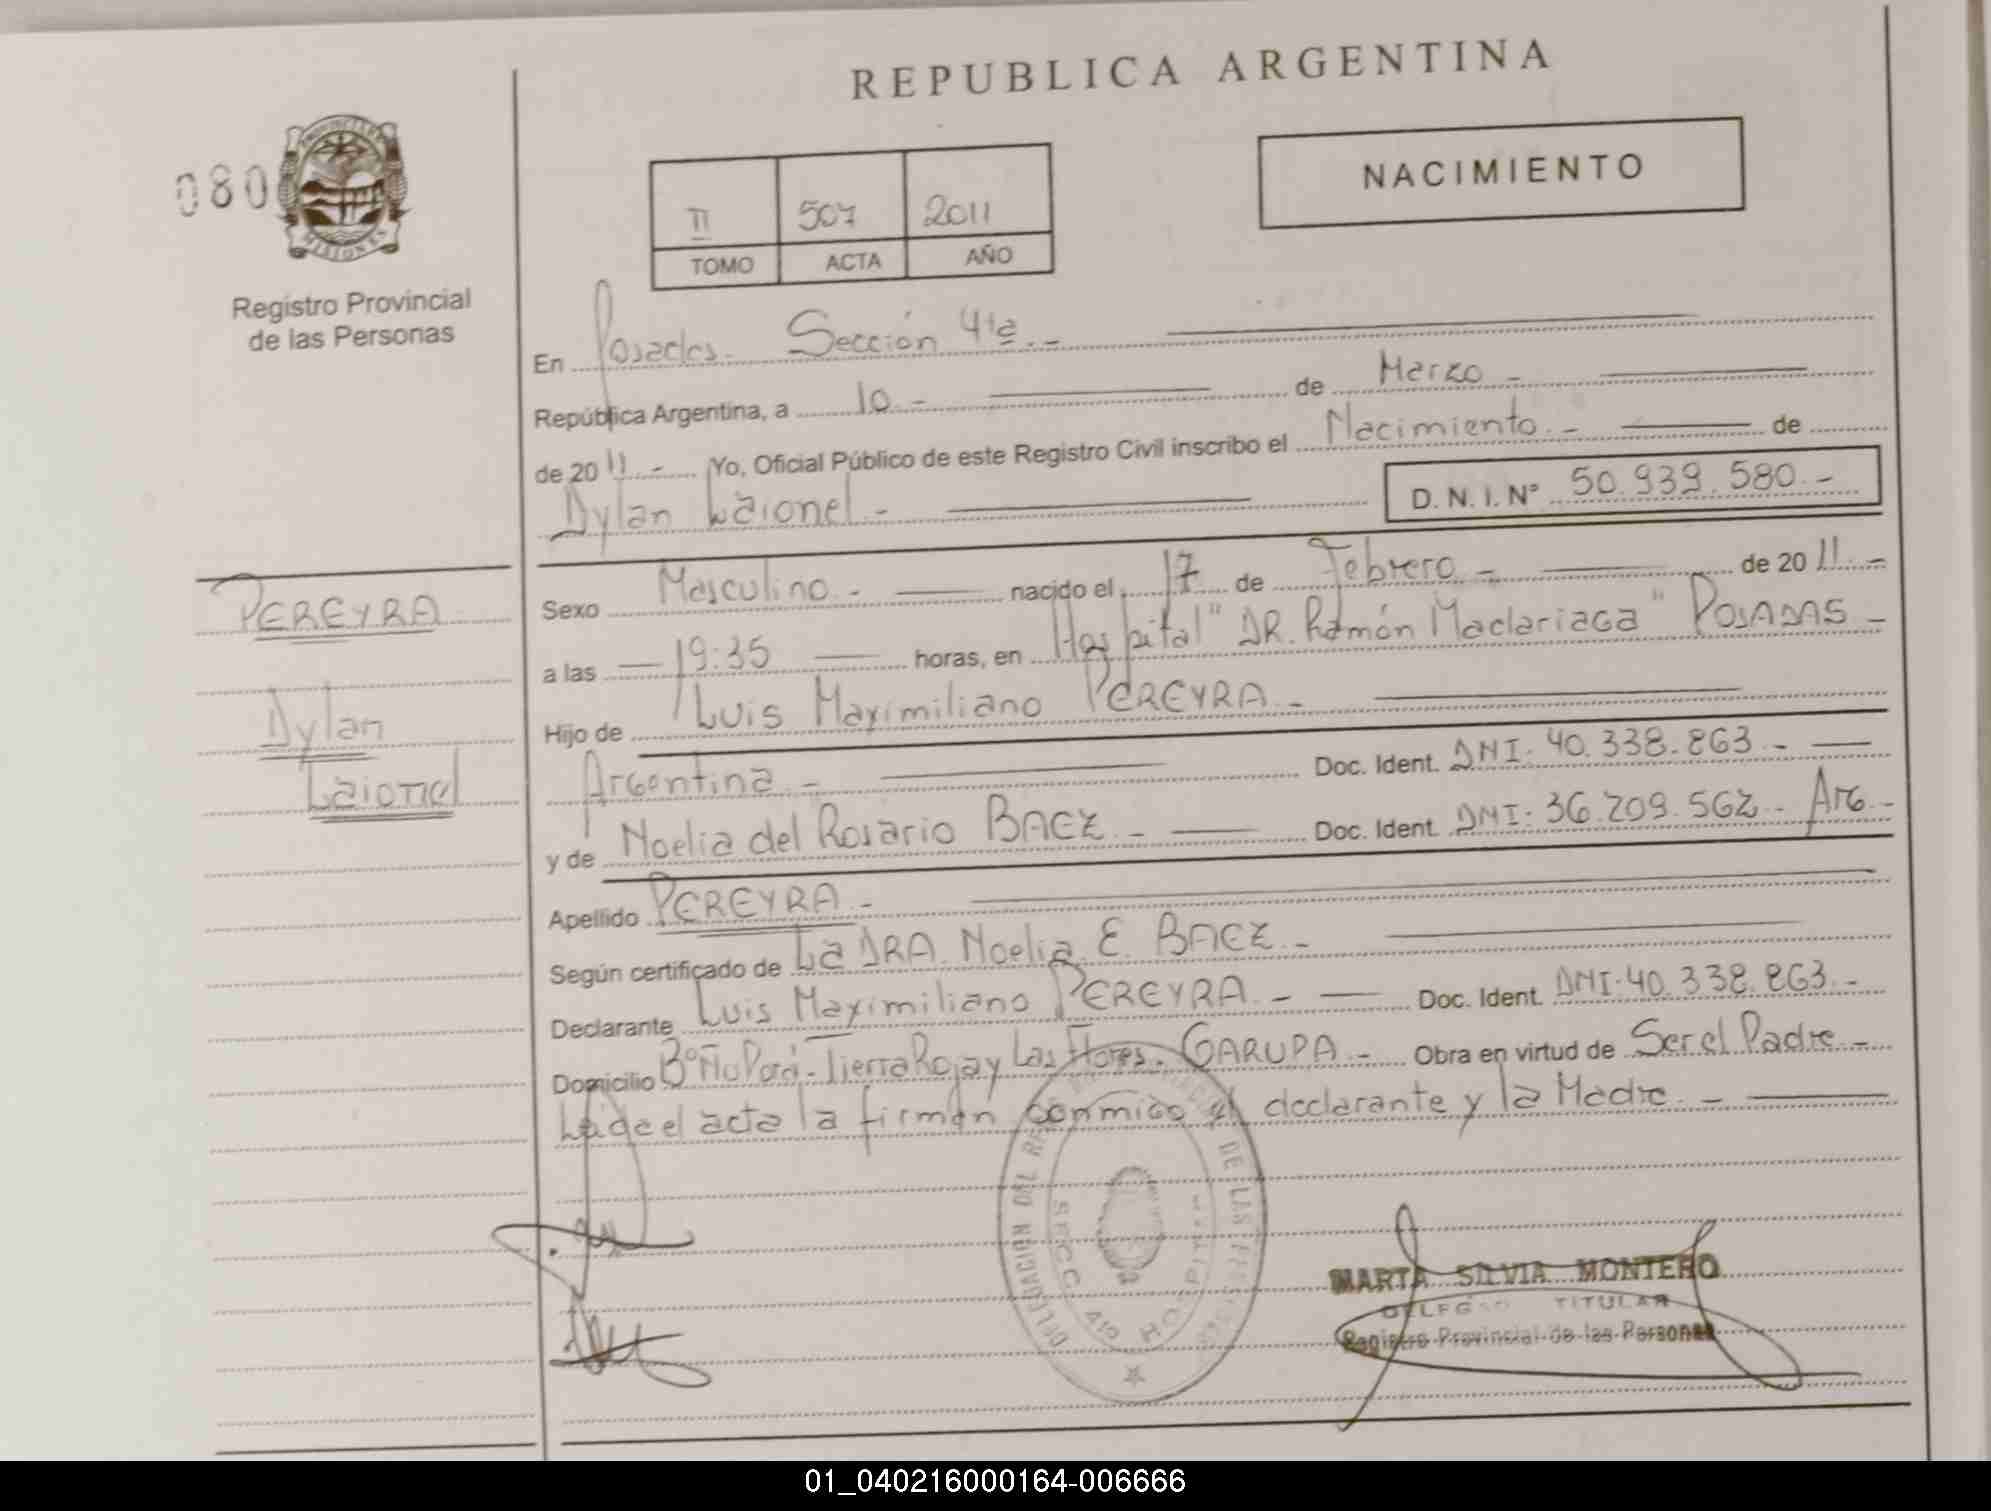 REPUBLICA ARGENTINA
080
PROVINCIA DE
MISIONES
Registro Provincial
de las Personas
II 507 2011
TOMO ACTA AÑO
NACIMIENTO
En Posadas. Sección 4ta.-
República Argentina, a 10.- de Marzo -
de 2011.- Yo, Oficial Público de este Registro Civil inscribo el Nacimiento.- de
Dylan Laionel - D.N.I.Nº 50.939.580.-
PEREYRA
Dylan
Laionel
Sexo Masculino.- nacido el 17 de Febrero - de 2011.-
a las 19:35 horas, en Hospital "DR. Ramón Madariaga" POSADAS -
Hijo de Luis Maximiliano PEREYRA.-
Argentina.- Doc. Ident. DNI. 40.338.863.-
y de Noelia del Rosario BAEZ.- Doc. Ident. DNI: 36.209.562.- Arg.-
Apellido PEREYRA.-
Según certificado de La DRA. Noelia E. BAEZ.-
Declarante Luis Maximiliano PEREYRA.- Doc. Ident. DNI.40.338.863.-
Domicilio Bº Ñu Porá - Tierra Roja y Las Flores. GARUPA.- Obra en virtud de Ser el Padre.-
Leída el acta la firman conmigo el declarante y la Madre.-
DELEGACION DEL DE LAS
SECC 4ta HOSPITAL
MARTA SILVIA MONTERO
TITULAR
Registro Provincial de las Personas
01_040216000164-006666